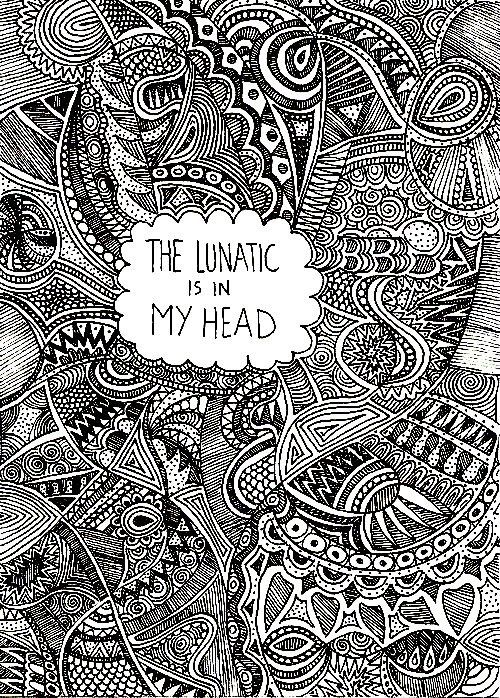 THE LUNATIC
IS IN
MY HEAD